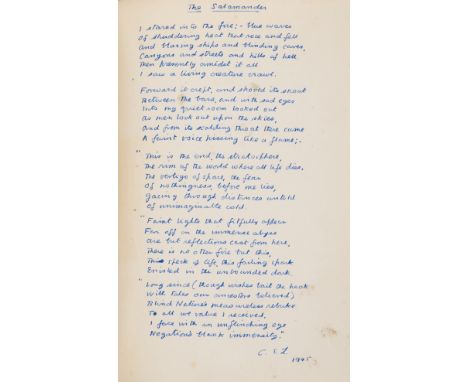 The Salamander
I stared into the fire;– blue waves
Of shuddering heat that rose and fell
And blazing ships and blinding caves,
Canyons and streets and hills of hell
Then presently amidst it all
I saw a living creature crawl.
Forward it crept, and shoved its snout
Between the bars, and with sad eyes
Into my quiet room looked out
As men look out upon the skies,
And from its scalding throat there came
A faint voice hissing like a flame;–
"This is the end, the stratosphere,
The rim of the world where all life dies,
The vertigo of space, the fear
Of nothingness; before me lies,
Gazing through distances untold
Of unimaginable cold.
"Faint lights that fitfully appear
Far off on the immense abyss
Are but reflections cast from here,
There is no other fire but this,
This speck of life, this fading spark
Enisled in the unbounded dark.
"Long since (though
will tales our ancestors believed)
Blind Nature's measureless rebuke
To all we value I received,
I face with an unflinching eye
Negation's blank immensity."
C. S. L
1945